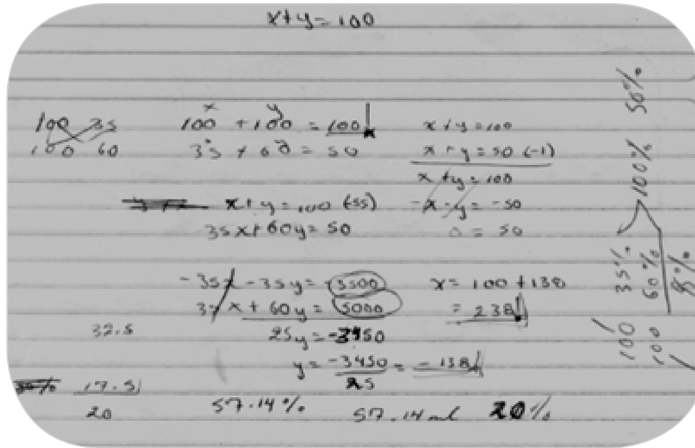 x+y=100
100 35
100 60
x y
100 + 100 = 100
35 + 60 = 50
x+y=100
x+y=50 (-1)
x+y=100
-x-y=-50
0=50
x+y=100 (-35)
35x+60y=50
-35x-35y=-3500
35x+60y=5000
25y=-3450
y=-3450/25=-138
x=100+138
=238
32.5
17.5
20
57.14%
57.14 ml
20%
100 35%
100 60%
100% 50%